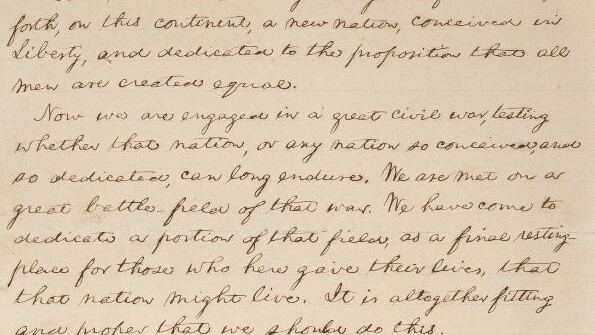 forth, on this continent, a new nation, conceived in
Liberty, and dedicated to the proposition that all
men are created equal.
Now we are engaged in a great civil war, testing
whether that nation, or any nation so conceived, and
so dedicated, can long endure. We are met on a
great battle-field of that war. We have come to
dedicate a portion of that field, as a final resting-
place for those who here gave their lives, that
that nation might live. It is altogether fitting
and proper that we should do this.